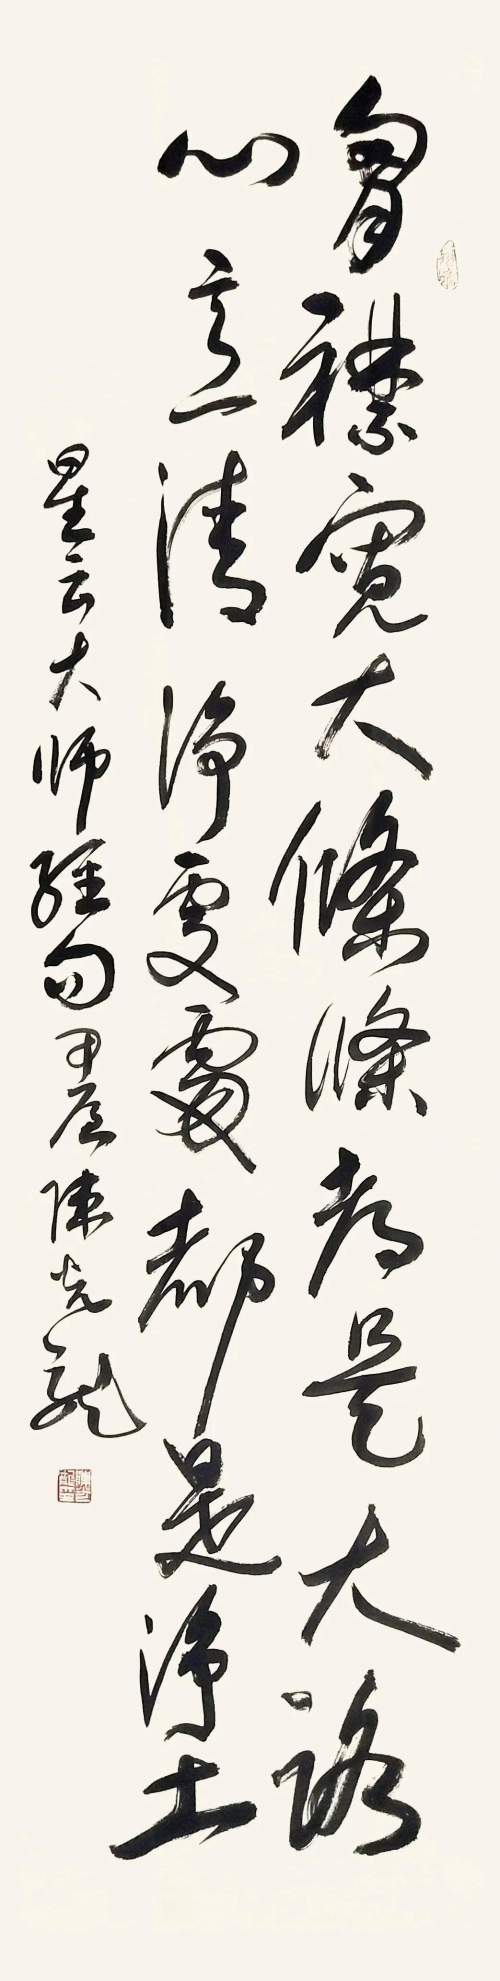 胷襟寬大條條都是大路
心意清淨處處都是淨土
星云大师經句甲辰陳光龍